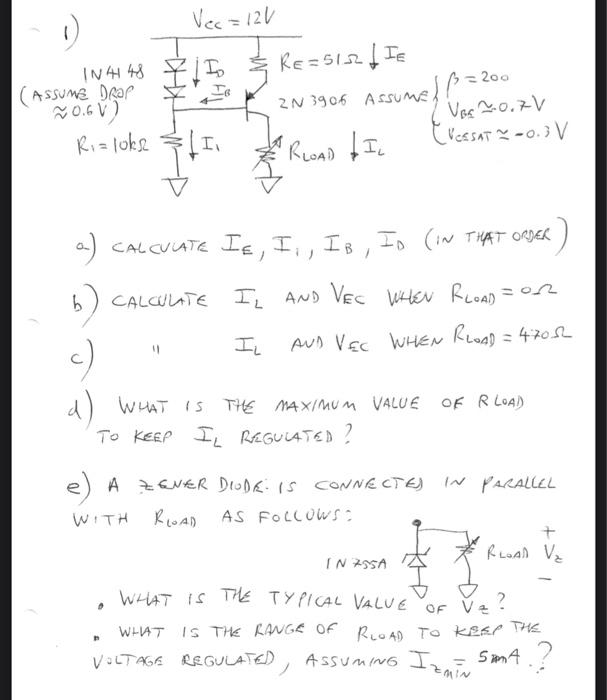 1)
Vcc = 12V
1N4148
(ASSUME DROP
≈0.6V)
ID
IB
RE = 51Ω ↓ IE
2N3906 ASSUME { β = 200
VBE ≈ -0.7V
VCESAT ≈ -0.3V
R1 = 10kΩ
↓ I1
RLOAD ↓ IL
a) CALCULATE IE, I1, IB, ID (IN THAT ORDER)
b) CALCULATE IL AND VEC WHEN RLOAD = 0Ω
c) " IL AND VEC WHEN RLOAD = 470Ω
d) WHAT IS THE MAXIMUM VALUE OF RLOAD
TO KEEP IL REGULATED?
e) A ZENER DIODE IS CONNECTED IN PARALLEL
WITH RLOAD AS FOLLOWS:
1N755A
RLOAD
+
Vz
-
• WHAT IS THE TYPICAL VALUE OF Vz?
• WHAT IS THE RANGE OF RLOAD TO KEEP THE
VOLTAGE REGULATED, ASSUMING IzMIN = 5mA.?